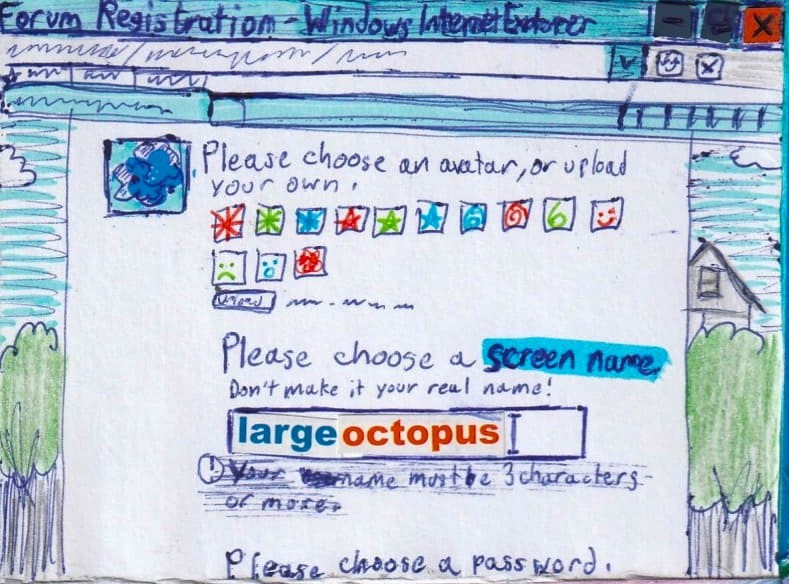 Forum Registration - Windows Internet Explorer
Please choose an avatar, or upload
your own.
Upload
Please choose a screen name.
Don't make it your real name!
large octopus
! Your name must be 3 characters
or more.
Please choose a password.